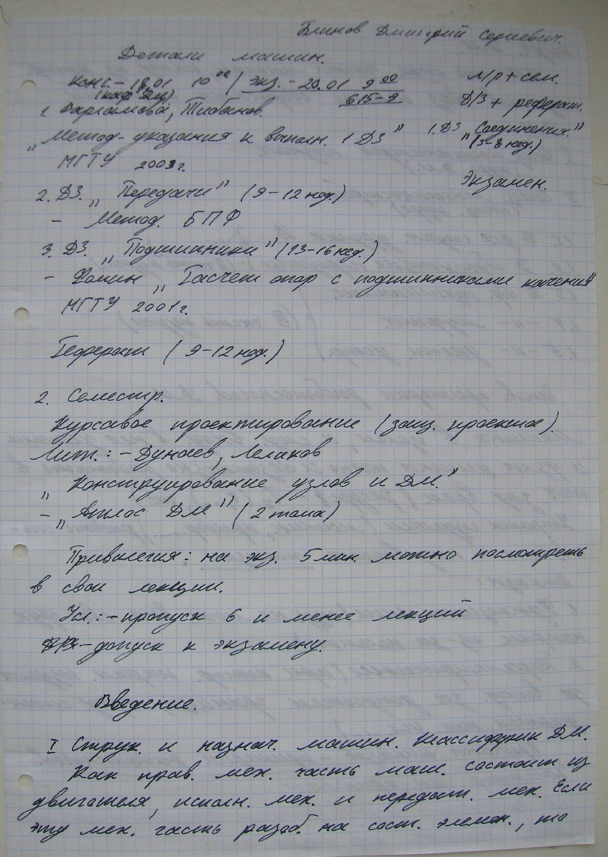 Блинов Дмитрий Сергеевич.
Детали машин.
Конс – 18.01 10⁰⁰ / экз. – 20.01 9⁰⁰ л/р + сем.
615-
1. Варламова, Тибанов. Д/З + реферат.
„Метод. указания к выполн. 1 ДЗ" 1.ДЗ „Соединения."
МГТУ 2003г. (3-8 нед.)
Экзамен.
2. ДЗ. „Передачи" (9-12 нед.)
– Метод. БПФ
3. ДЗ. „Подшипники" (13-16 нед.)
– Фомин „Расчет опор с подшипниками качения"
МГТУ 2001г.
Реферат (9-12 нед.)
2. Семестр.
Курсовое проектирование (защ. проекта).
Лит.: – Дунаев, Леликов
„Конструирование узлов и ДМ."
– „Атлас ДМ" (2 тома)
Привилегия: на экз. 5 мин. можно посмотреть
в свои лекции.
Усл: – пропуск 6 и менее лекций
– допуск к экзамену.
Введение.
I Струк. и назнач. машин. Классифик ДМ.
Как прав. мех. часть маш. состоит из
двигателя, исполн. мех. и передат. мех. Если
эту мех. часть разоб. на сост. элемен., то